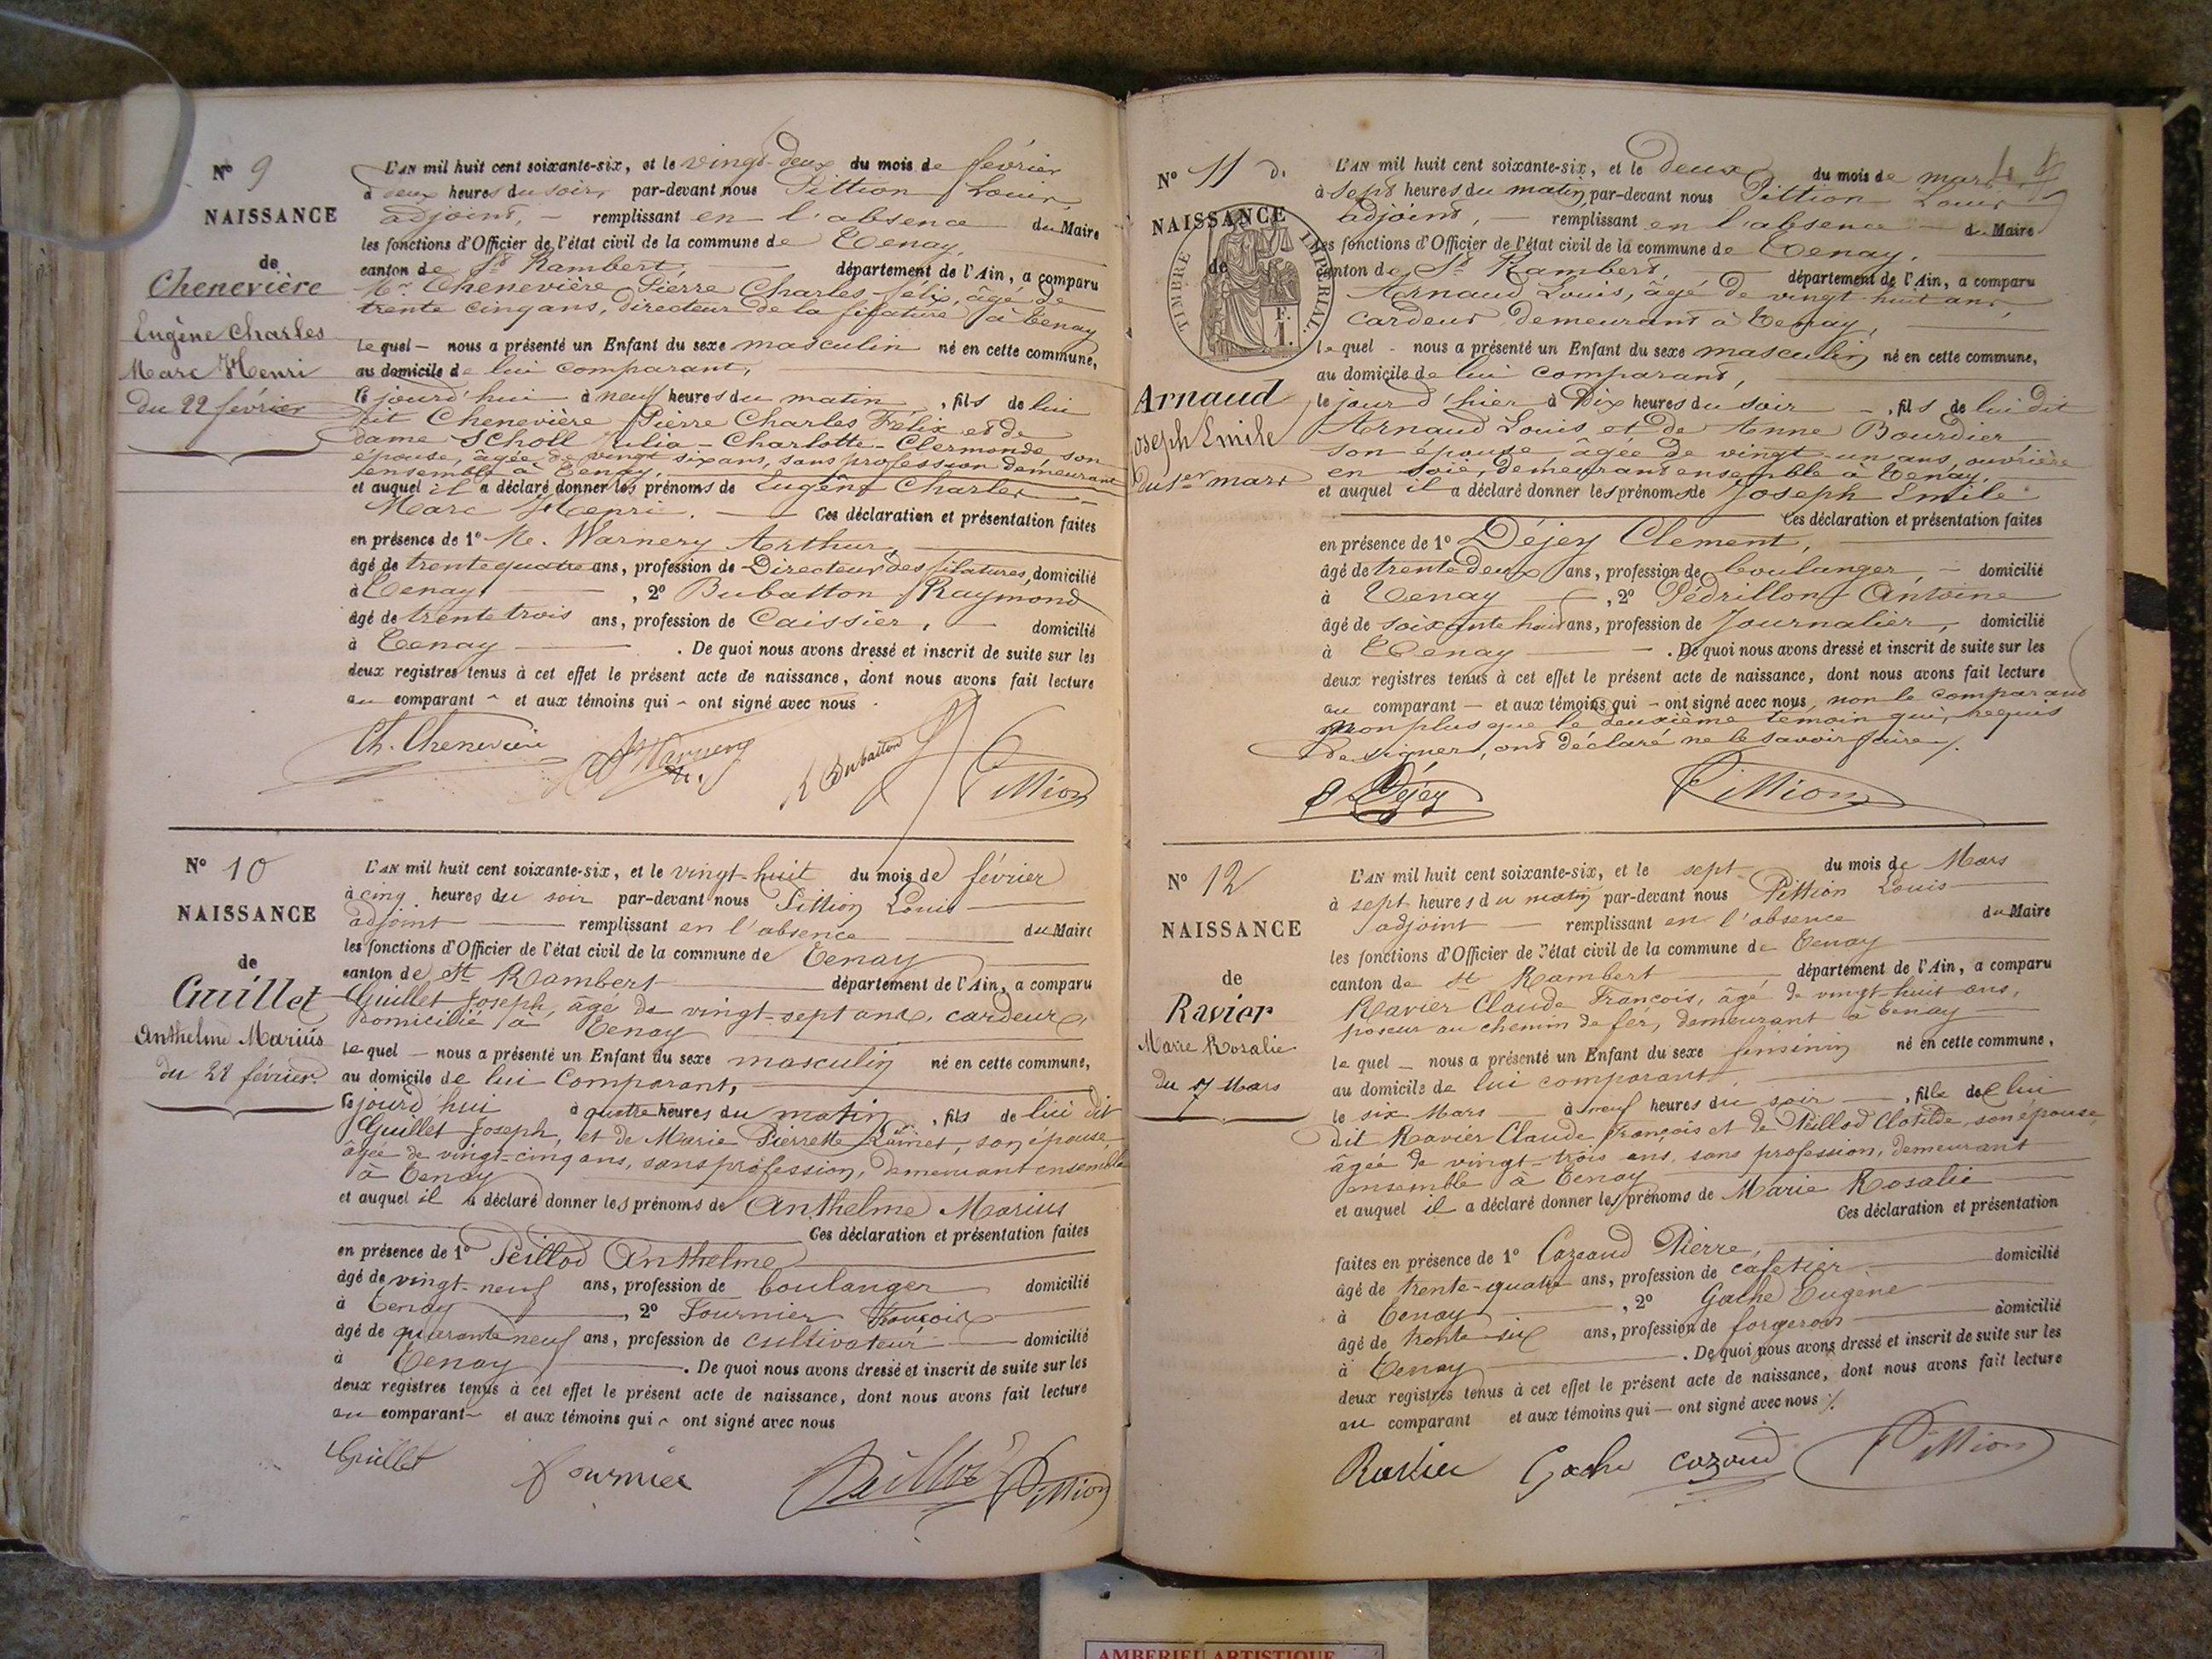 N° 9
NAISSANCE
de
Chenevière
Eugène Charles
Marc Henri
du 22 février
L'AN mil huit cent soixante-six, et le vingt-deux du mois de février
à deux heures du soir, par-devant nous Pittion Louis
adjoint, — remplissant en l'absence du Maire
les fonctions d'Officier de l'état civil de la commune de Tenay,
canton de St Rambert, département de l'Ain, a comparu
Mr Chenevière Pierre Charles Félix, âgé de
trente cinq ans, directeur de la filature à Tenay
lequel — nous a présenté un Enfant du sexe masculin né en cette commune,
au domicile de lui comparant,
ce jourd'hui à neuf heures du matin, fils de lui
dit Chenevière Pierre Charles Félix et de
dame Scholl Julia-Charlotte-Clermonde son
épouse, âgée de vingt six ans, sans profession demeurant
ensemble à Tenay.
et auquel il a déclaré donner les prénoms de Eugène Charles
Marc Henri. — Ces déclaration et présentation faites
en présence de 1° Mr. Warnery Arthur,
âgé de trente quatre ans, profession de Directeur des filatures, domicilié
à Tenay, 2° Bubatton Raymond
âgé de trente trois ans, profession de Caissier, — domicilié
à Tenay — . De quoi nous avons dressé et inscrit de suite sur les
deux registres tenus à cet effet le présent acte de naissance, dont nous avons fait lecture
au comparant - et aux témoins qui - ont signé avec nous.
Ch. Chenevière Warnery R Bubatton Pittion
N° 10
NAISSANCE
de
Guillet
Anthelme Marius
du 28 février.
L'AN mil huit cent soixante-six, et le vingt-huit du mois de février
à cinq heures du soir par-devant nous Pittion Louis
adjoint — remplissant en l'absence — du Maire
les fonctions d'Officier de l'état civil de la commune de Tenay
canton de St Rambert — département de l'Ain, a comparu
Guillet Joseph, âgé de vingt-sept ans, cardeur,
domicilié à Tenay
lequel — nous a présenté un Enfant du sexe masculin né en cette commune,
au domicile de lui comparant,
ce jourd'hui à quatre heures du matin, fils de lui dit
Guillet Joseph, et de Marie Pierrette son épouse,
âgée de vingt-cinq ans, sans profession, demeurant ensemble
à Tenay
et auquel il a déclaré donner les prénoms de Anthelme Marius
Ces déclaration et présentation faites
en présence de 1° Peillod Anthelme
âgé de vingt-neuf ans, profession de boulanger domicilié
à Tenay — , 2° Fournier François
âgé de quarante neuf ans, profession de cultivateur — domicilié
à Tenay — . De quoi nous avons dressé et inscrit de suite sur les
deux registres tenus à cet effet le présent acte de naissance, dont nous avons fait lecture
au comparant - et aux témoins qui - ont signé avec nous
Guillet fournier Peillod Pittion
N° 11
NAISSANCE
de
TIMBRE IMPERIAL.
F.
1.
Arnaud
Joseph Emile
du 1er mars
L'AN mil huit cent soixante-six, et le deux du mois de mars
à sept heures du matin, par-devant nous Pittion Louis
adjoint, — remplissant en l'absence — du Maire
les fonctions d'Officier de l'état civil de la commune de Tenay,
canton de St Rambert, département de l'Ain, a comparu
Arnaud Louis, âgé de vingt-huit ans,
cardeur, demeurant à Tenay,
lequel - nous a présenté un Enfant du sexe masculin né en cette commune,
au domicile de lui comparant,
le jour d'hier à Dix heures du soir — , fils de lui dit
Arnaud Louis et de Anne Bourdier
son épouse âgée de vingt-un ans, ouvrière
en soie, demeurant ensemble à Tenay.
et auquel il a déclaré donner les prénoms de Joseph Emile
Ces déclaration et présentation faites
en présence de 1° Déjey Clement,
âgé de trente deux ans, profession de boulanger, — domicilié
à Tenay — , 2° Pédrillon Antoine
âgé de soixante huit ans, profession de Journalier, domicilié
à Tenay — . De quoi nous avons dressé et inscrit de suite sur les
deux registres tenus à cet effet le présent acte de naissance, dont nous avons fait lecture
au comparant — et aux témoins qui - ont signé avec nous, non le comparant
non plus que le deuxième temoin qui, requis
de signer, ont déclaré ne le savoir faire.
Déjey Pittion
N° 12
NAISSANCE
de
Ravier
Marie Rosalie
du 7 Mars
L'AN mil huit cent soixante-six, et le sept du mois de Mars
à sept heures du matin par-devant nous Pittion Louis
adjoint — remplissant en l'absence du Maire
les fonctions d'Officier de l'état civil de la commune de Tenay
canton de St Rambert — , département de l'Ain, a comparu
Ravier Claude François, âgé de vingt-huit ans,
poseur au chemin de fer, demeurant à Tenay
lequel — nous a présenté un Enfant du sexe féminin né en cette commune,
au domicile de lui comparant,
le six Mars — à neuf heures du soir — , fille de lui
dit Ravier Claude François et de Peillod Clotilde, son épouse,
âgée de vingt-trois ans, sans profession, demeurant
ensemble à Tenay
et auquel il a déclaré donner les prénoms de Marie Rosalie
Ces déclaration et présentation
faites en présence de 1° Cozaud Pierre,
âgé de trente-quatre ans, profession de cafetier — domicilié
à Tenay — , 2° Gache Eugène
âgé de trente-six ans, profession de forgeron — domicilié
à Tenay — . De quoi nous avons dressé et inscrit de suite sur les
deux registres tenus à cet effet le présent acte de naissance, dont nous avons fait lecture
au comparant et aux témoins qui — ont signé avec nous
Ravier Gache Cozaud Pittion
AMBERIEU ARTISTIQUE